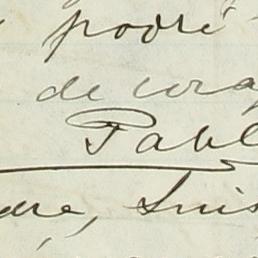 podré
de cora
Pabl
dre, Luis